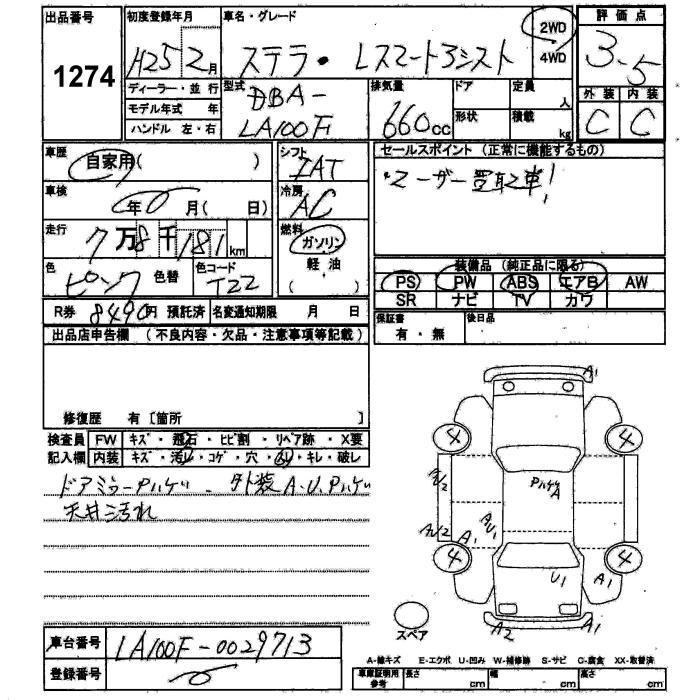 出品番号
1274
初度登録年月
H25 2月
車名・グレード
ステラ・Lスマートアシスト
2WD
4WD
評価点
3.5
外装 内装
C C
ディーラー・並行
モデル年式 年
ハンドル 左・右
型式
DBA-
LA100F
排気量
660cc
ドア
形状
定員
人
積載
kg
車歴
自家用( )
車検
年 月( 日)
走行
7万8千181km
色
ピンク 色替
色コード
T22
シフト
IAT
冷房
AC
燃料
ガソリン
軽・油
( )
セールスポイント (正常に機能するもの)
・ユーザー買取車!
装備品 (純正品に限る)
PS PW ABS エアB AW
SR ナビ TV カワ
R券 8490円 預託済 名変通知期限 月 日
保証書
有・無
後日品
出品店申告欄 (不良内容・欠品・注意事項等記載)
修復歴 有 [箇所 ]
検査員 FW キズ・飛石・ヒビ割・リペア跡・X要
記入欄 内装 キズ・汚レ・コゲ・穴・・キレ・破レ
ドアミラーPハゲ 外装A.U.Pハゲ
天井汚れ
A1
4 4
PハゲA
AU2
AU2
A1
AU1
4 4
U1
A1
A2
A1
スペア
車台番号 LA100F-0029713
登録番号
A-線キズ E-エクボ U-凹み W-補修跡 S-サビ C-腐食 XX-取替済
車庫証明用
参考
長さ cm 幅 cm 高さ cm